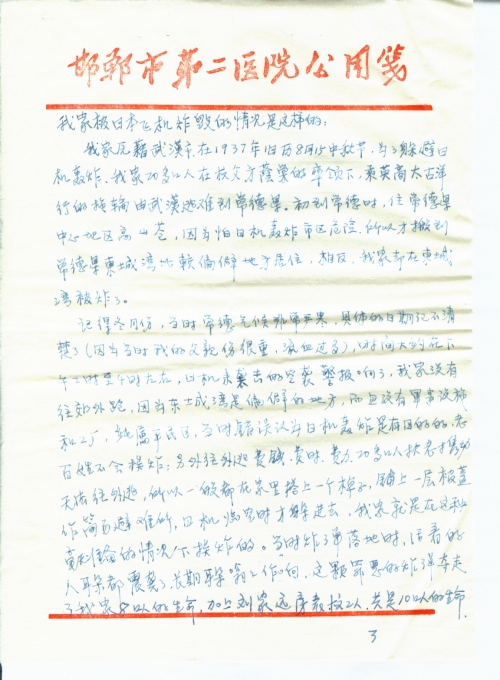 邯郸市第二医院公用笺
我家被日本飞机炸毁的情况是这样的:
我家原籍武汉市在1937年旧历8月15中秋节,为了躲避日
机轰炸,我家20多口人在叔父方荫棠的率领下,乘英商太古洋
行的货轮由武汉逃难到常德县。初到常德时,住常德县
中心地区高山巷,因为怕日机轰炸市区危险,所以才搬到
常德县东城湾比较偏僻地方居住,相反,我家却在东城
湾被炸了。
记得冬月份,当时常德气候非常严寒,具体的日期记不清
楚了(因为当时我的父亲伤很重,流血过多),时间大约在下
午二时至 时左右,日机来袭击的空袭警报响了,我家没有
往郊外跑,因为东土城湾是偏僻的地方,而且没有军事设施
和工厂,纯属平民区,当时错误认为日机轰炸是有目的的,老
百姓不会挨炸;另外往外跑费钱、费时、费力,20多口人扶老
无法往外跑,所以一般都在家里搭上一个棚子,铺上一层板盖
作简易避难所,日机临空时才躲进去,我家就是在这种
的情况下挨炸的。当时炸弹落地时,活着的
人耳朵都震聋了长期耳朵嗡嗡作响,这颗罪恶的炸弹夺走
了我家8口人的生命,加上刘家远房叔2人,共是10口人的生命.
3